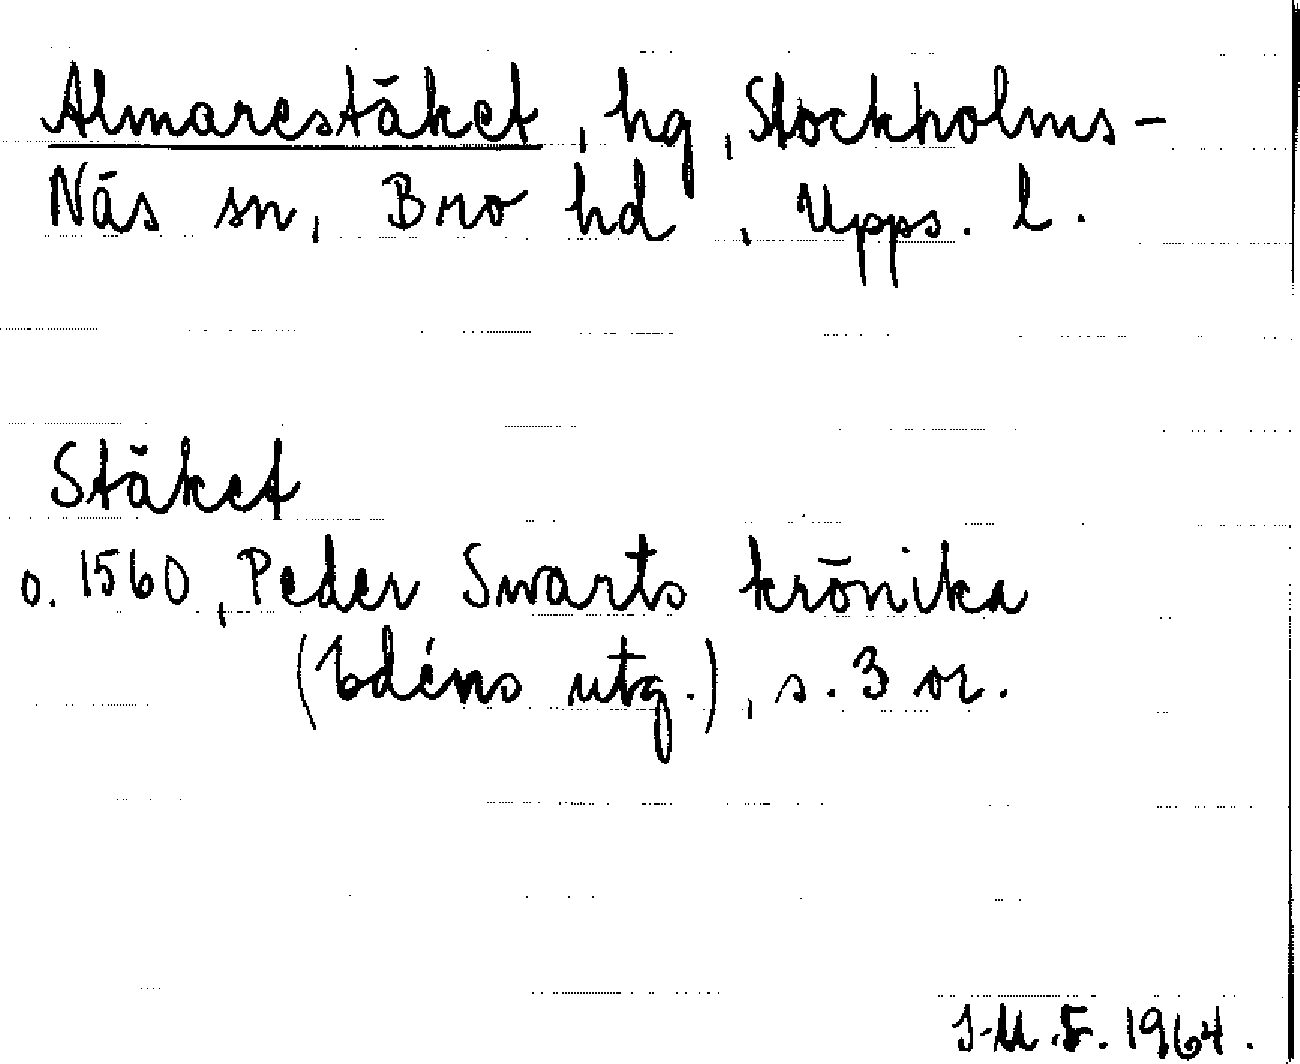 Almarestäket, hg, Stockholms-
Näs sn, Bro hd, Upps. l.
Stäket
o. 1560, Peder Swarts krönika
(Edéns utg.), s. 3 or.
J-M.F. 1964.